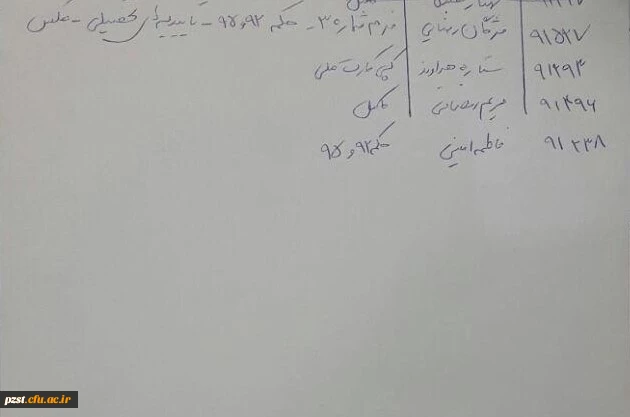 ۹۱۵۲۷ مژگان رضایی فرم شماره ۳ - حکم ۹۲ و ۹۵ - تاییدیه تحصیلی - عکس
۹۱۴۹۳ ستاره کپی کارت ملی
۹۱۴۹۶ مریم رمضانی کامل
۹۱۲۳۸ فاطمه امینی حکم ۹۲ و ۹۵
pzst.cfu.ac.ir